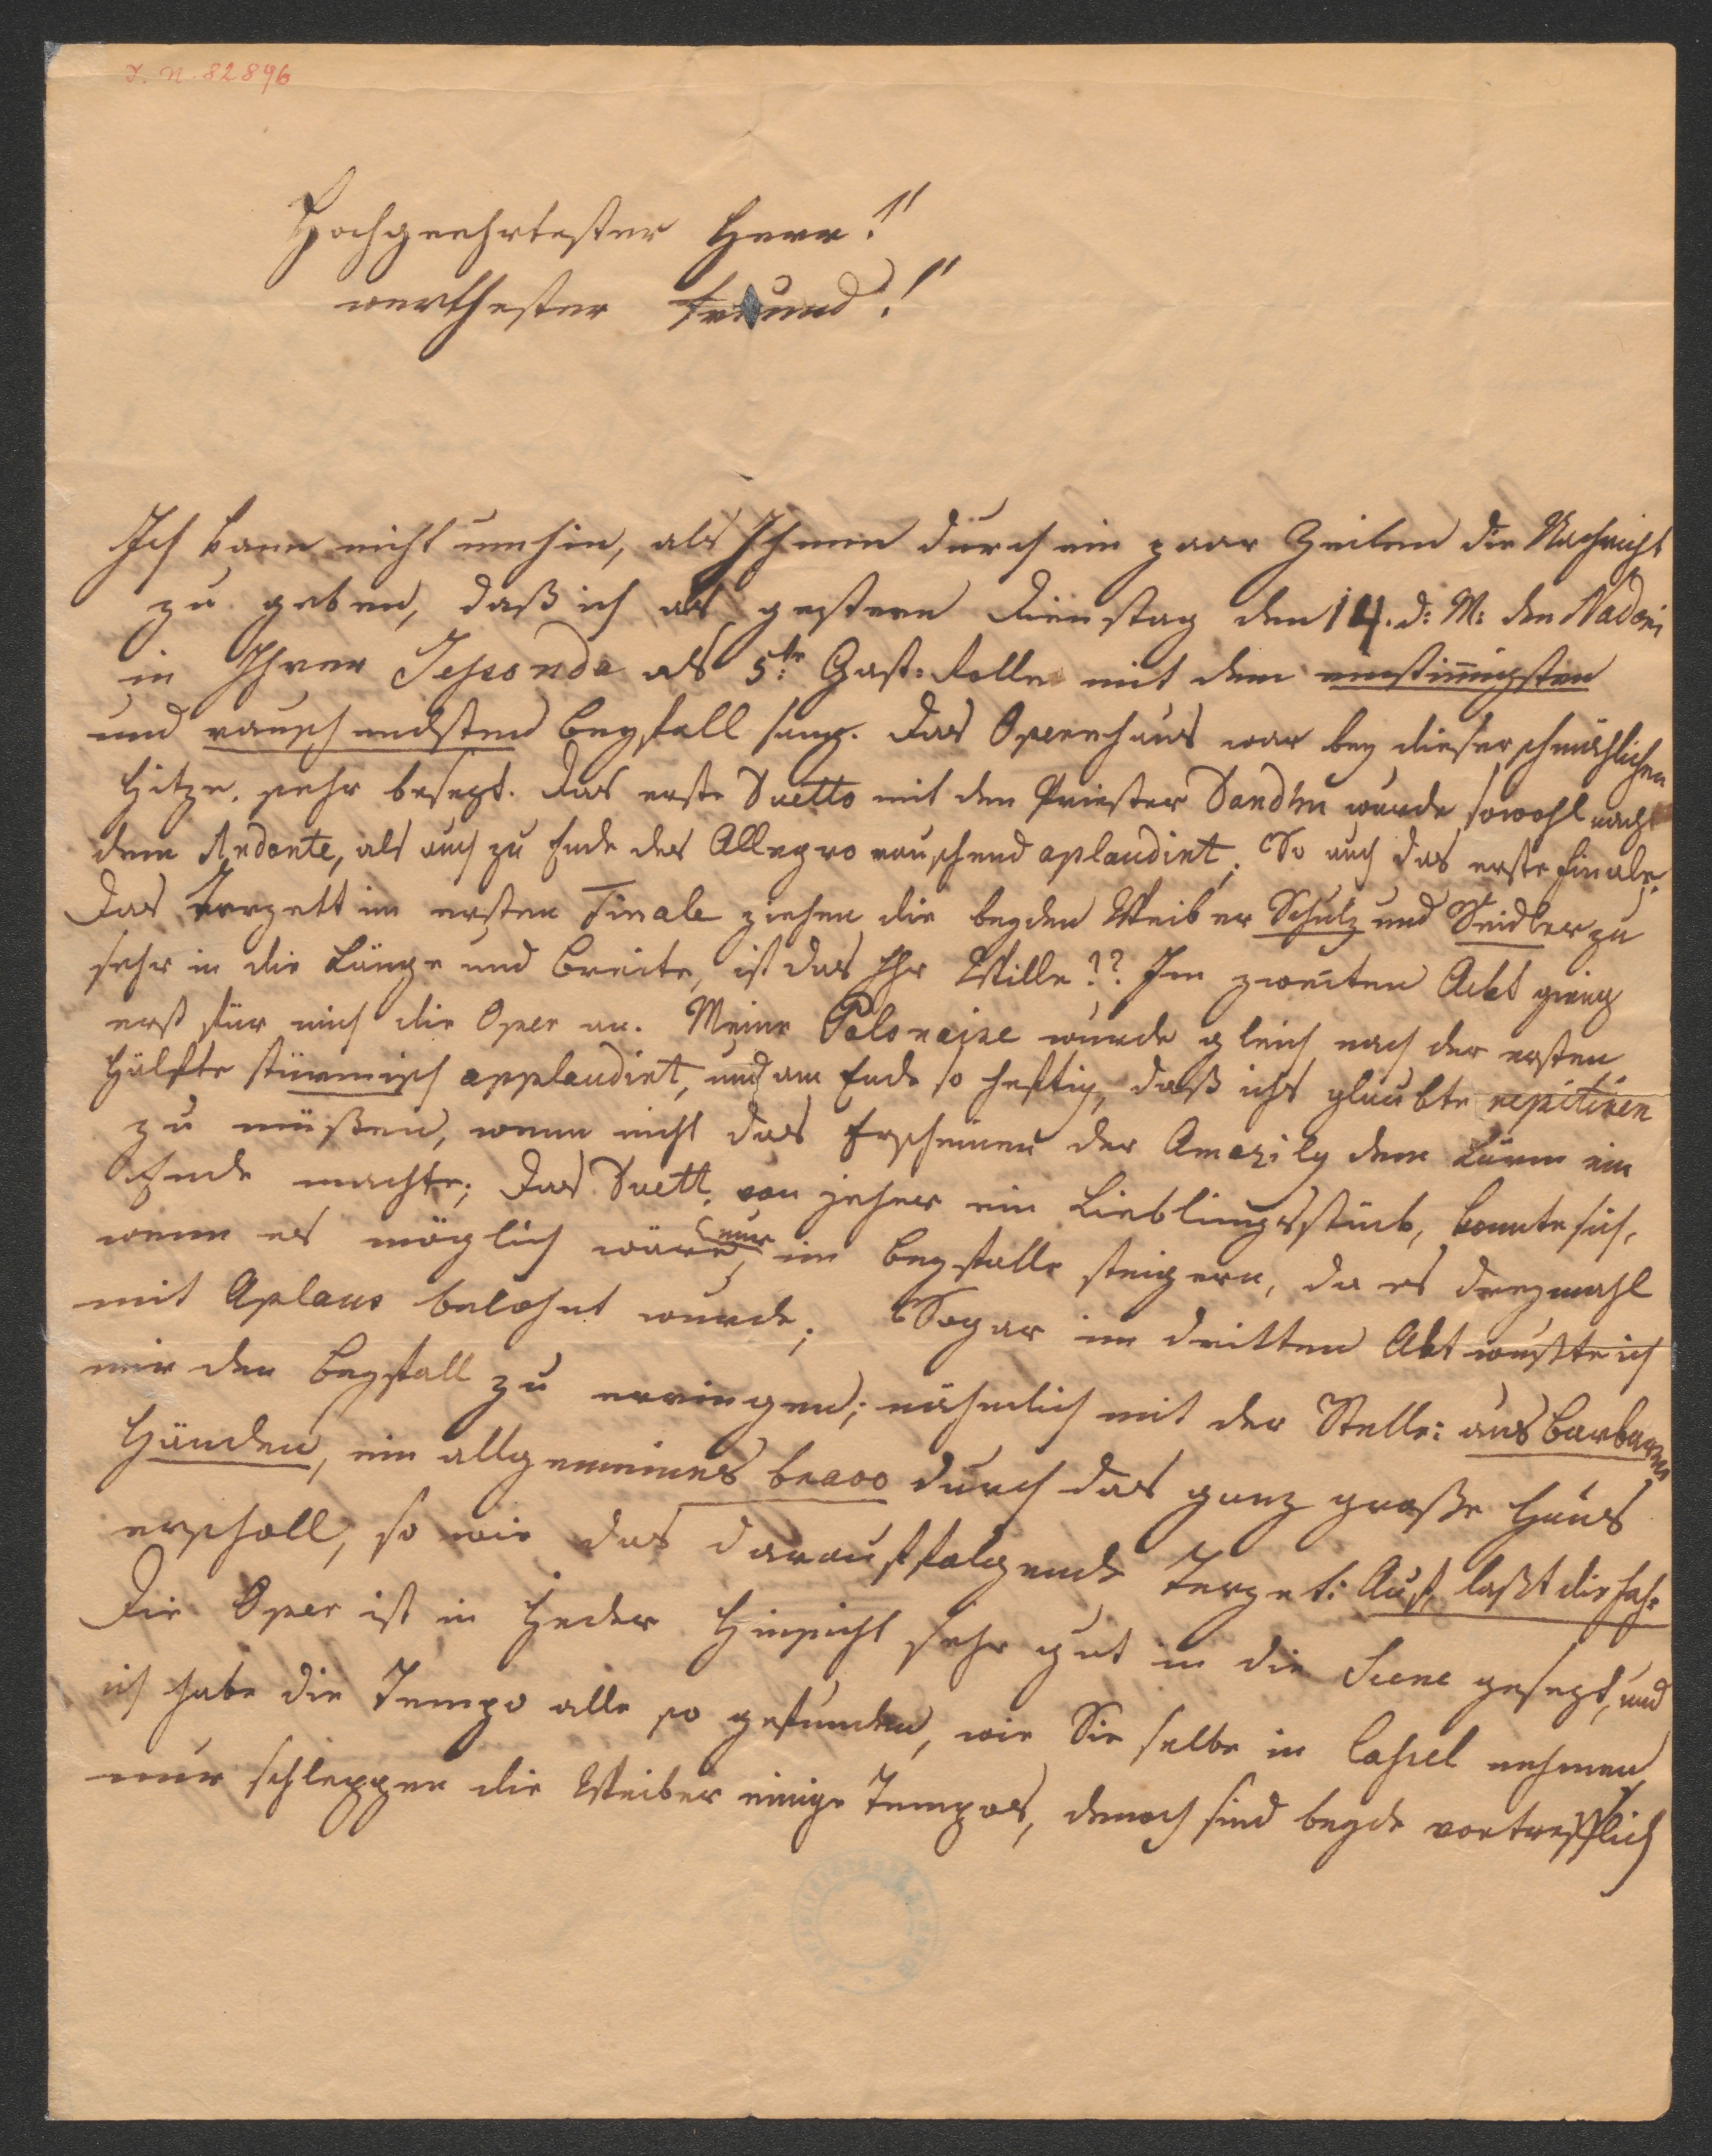 I. N. 82896
Hochgeehrtester Herr!!
werthester Freund!!
Ich kann nicht umhin, als Ihnen durch ein paar Zeilen die Nachricht
zu geben, daß ich als gestern Dienstag den 14. d: M: den Nadori
in Ihrer Jessonda als 5te Gast=Rolle mit dem einstimigsten
und rauschendsten Beyfall sang. Das Opernhaus war bey dieser schmählichen
Hitze, sehr besezt. Das erste Duetto mit den Priester Dandau wurde sowohl nach
dem Andante, als auch zu Ende des Allegro rauschend aplaudirt; So auch das erste Finale.
Das Terzett im ersten Finale ziehen die beyden Weiber Schulz und Seidler zu
sehr in die Länge und Breite, ist das Ihr Wille?? Im zweiten Ackt gieng
erst für mich die Oper an. Meine Polonaise wurde gleich nach der ersten
Hälfte stürmisch applaudirt, und am Ende so heftig, daß ichs glaubte repitiren
zu müßen, wenn nicht das Erscheinen der Amazily dem Lärm ein
Ende machte; Das Duett, von jeher ein Lieblingsstück, konnte sich,
wenn es möglich wäre, nur im Beyfalle steigern, da es dreymahl
mit Aplaus belohnt wurde; Sogar im dritten Akt wußte ich
mir den Beyfall zu erringen; nähmlich mit der Stelle: aus Barbaren
Händen, ein allgemeines bravo durch das ganz große Haus
erscholl, so wie das darauffolgende Terzet: Auf, laßt die Fah=
Die Oper ist in jeder Hinsicht sehr gut in die Scene gesezt, und
ich habe die Tempo alle so gefunden, wie Sie selbe in Cassel nehmen
nur schleppen die Weiber einige Tempos, denoch sind beyde vortrefflich